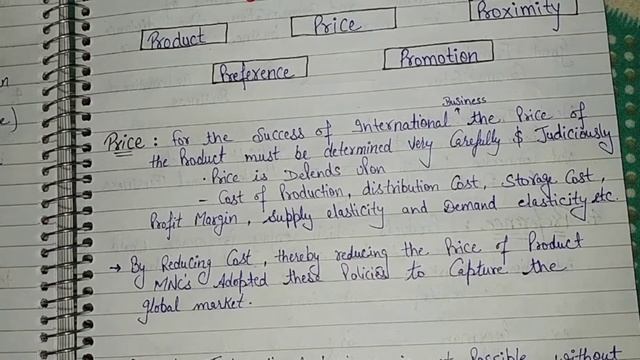 Proximity
Price
Product
Promotion
Preference
Business
Price : for the Success of International ^ the Price of
the Product must be determined very Carefully & Judiciously
· Price is Defends Upon
- Cost of Production, distribution Cost, Storage Cost,
Profit Margin, Supply elasticity and Demand elasticity etc.
→ By Reducing Cost, thereby reducing the Price of Product
MNCs Adopted these Policies to Capture the
global market.
Possible without